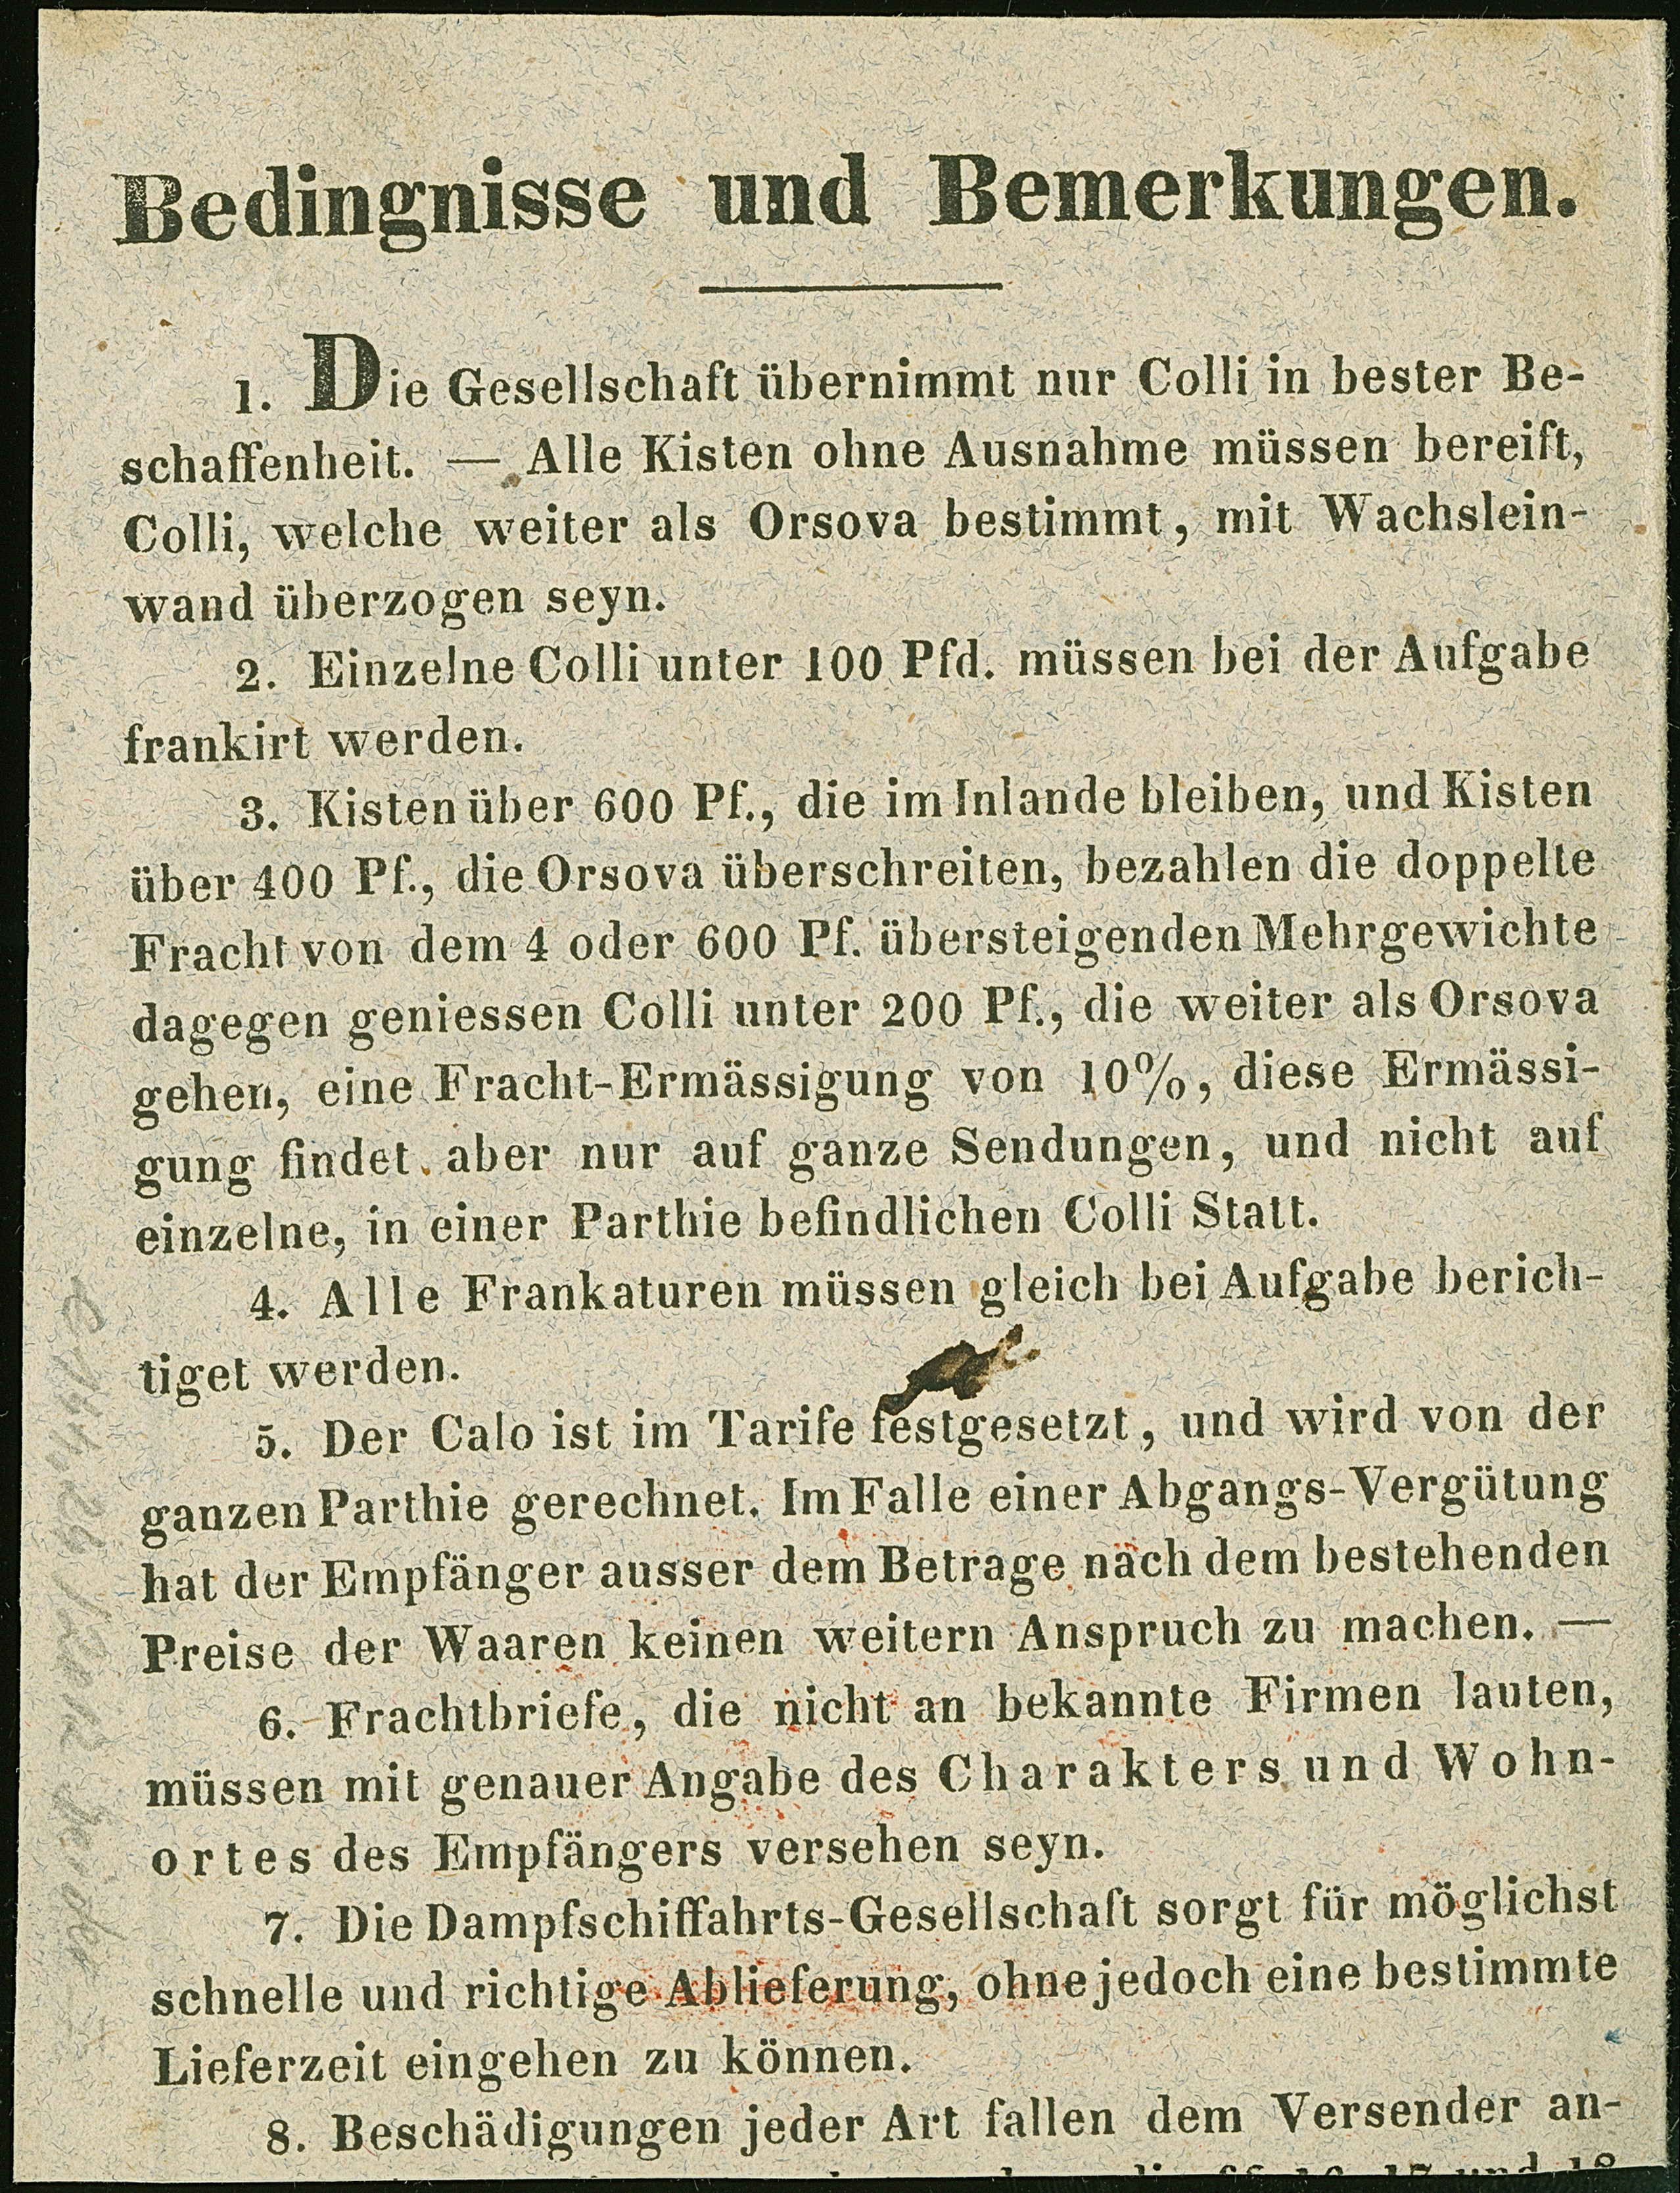 Bedingnisse und Bemerkungen.
1. Die Gesellschaft übernimmt nur Colli in bester Be-
schaffenheit. — Alle Kisten ohne Ausnahme müssen bereift,
Colli, welche weiter als Orsova bestimmt, mit Wachslein-
wand überzogen seyn.
2. Einzelne Colli unter 100 Pfd. müssen bei der Aufgabe
frankirt werden.
3. Kisten über 600 Pf., die im Inlande bleiben, und Kisten
über 400 Pf., die Orsova überschreiten, bezahlen die doppelte
Fracht von dem 4 oder 600 Pf. übersteigenden Mehrgewichte
dagegen geniessen Colli unter 200 Pf., die weiter als Orsova
gehen, eine Fracht-Ermässigung von 10%, diese Ermässi-
gung findet aber nur auf ganze Sendungen, und nicht auf
einzelne, in einer Parthie befindlichen Colli Statt.
4. Alle Frankaturen müssen gleich bei Aufgabe berich-
tiget werden.
5. Der Calo ist im Tarife festgesetzt, und wird von der
ganzen Parthie gerechnet. Im Falle einer Abgangs-Vergütung
hat der Empfänger ausser dem Betrage nach dem bestehenden
Preise der Waaren keinen weitern Anspruch zu machen. —
6. Frachtbriefe, die nicht an bekannte Firmen lauten,
müssen mit genauer Angabe des Charakters und Wohn-
ortes des Empfängers versehen seyn.
7. Die Dampfschiffahrts-Gesellschaft sorgt für möglichst
schnelle und richtige Ablieferung, ohne jedoch eine bestimmte
Lieferzeit eingehen zu können.
8. Beschädigungen jeder Art fallen dem Versender an-
17 und 18